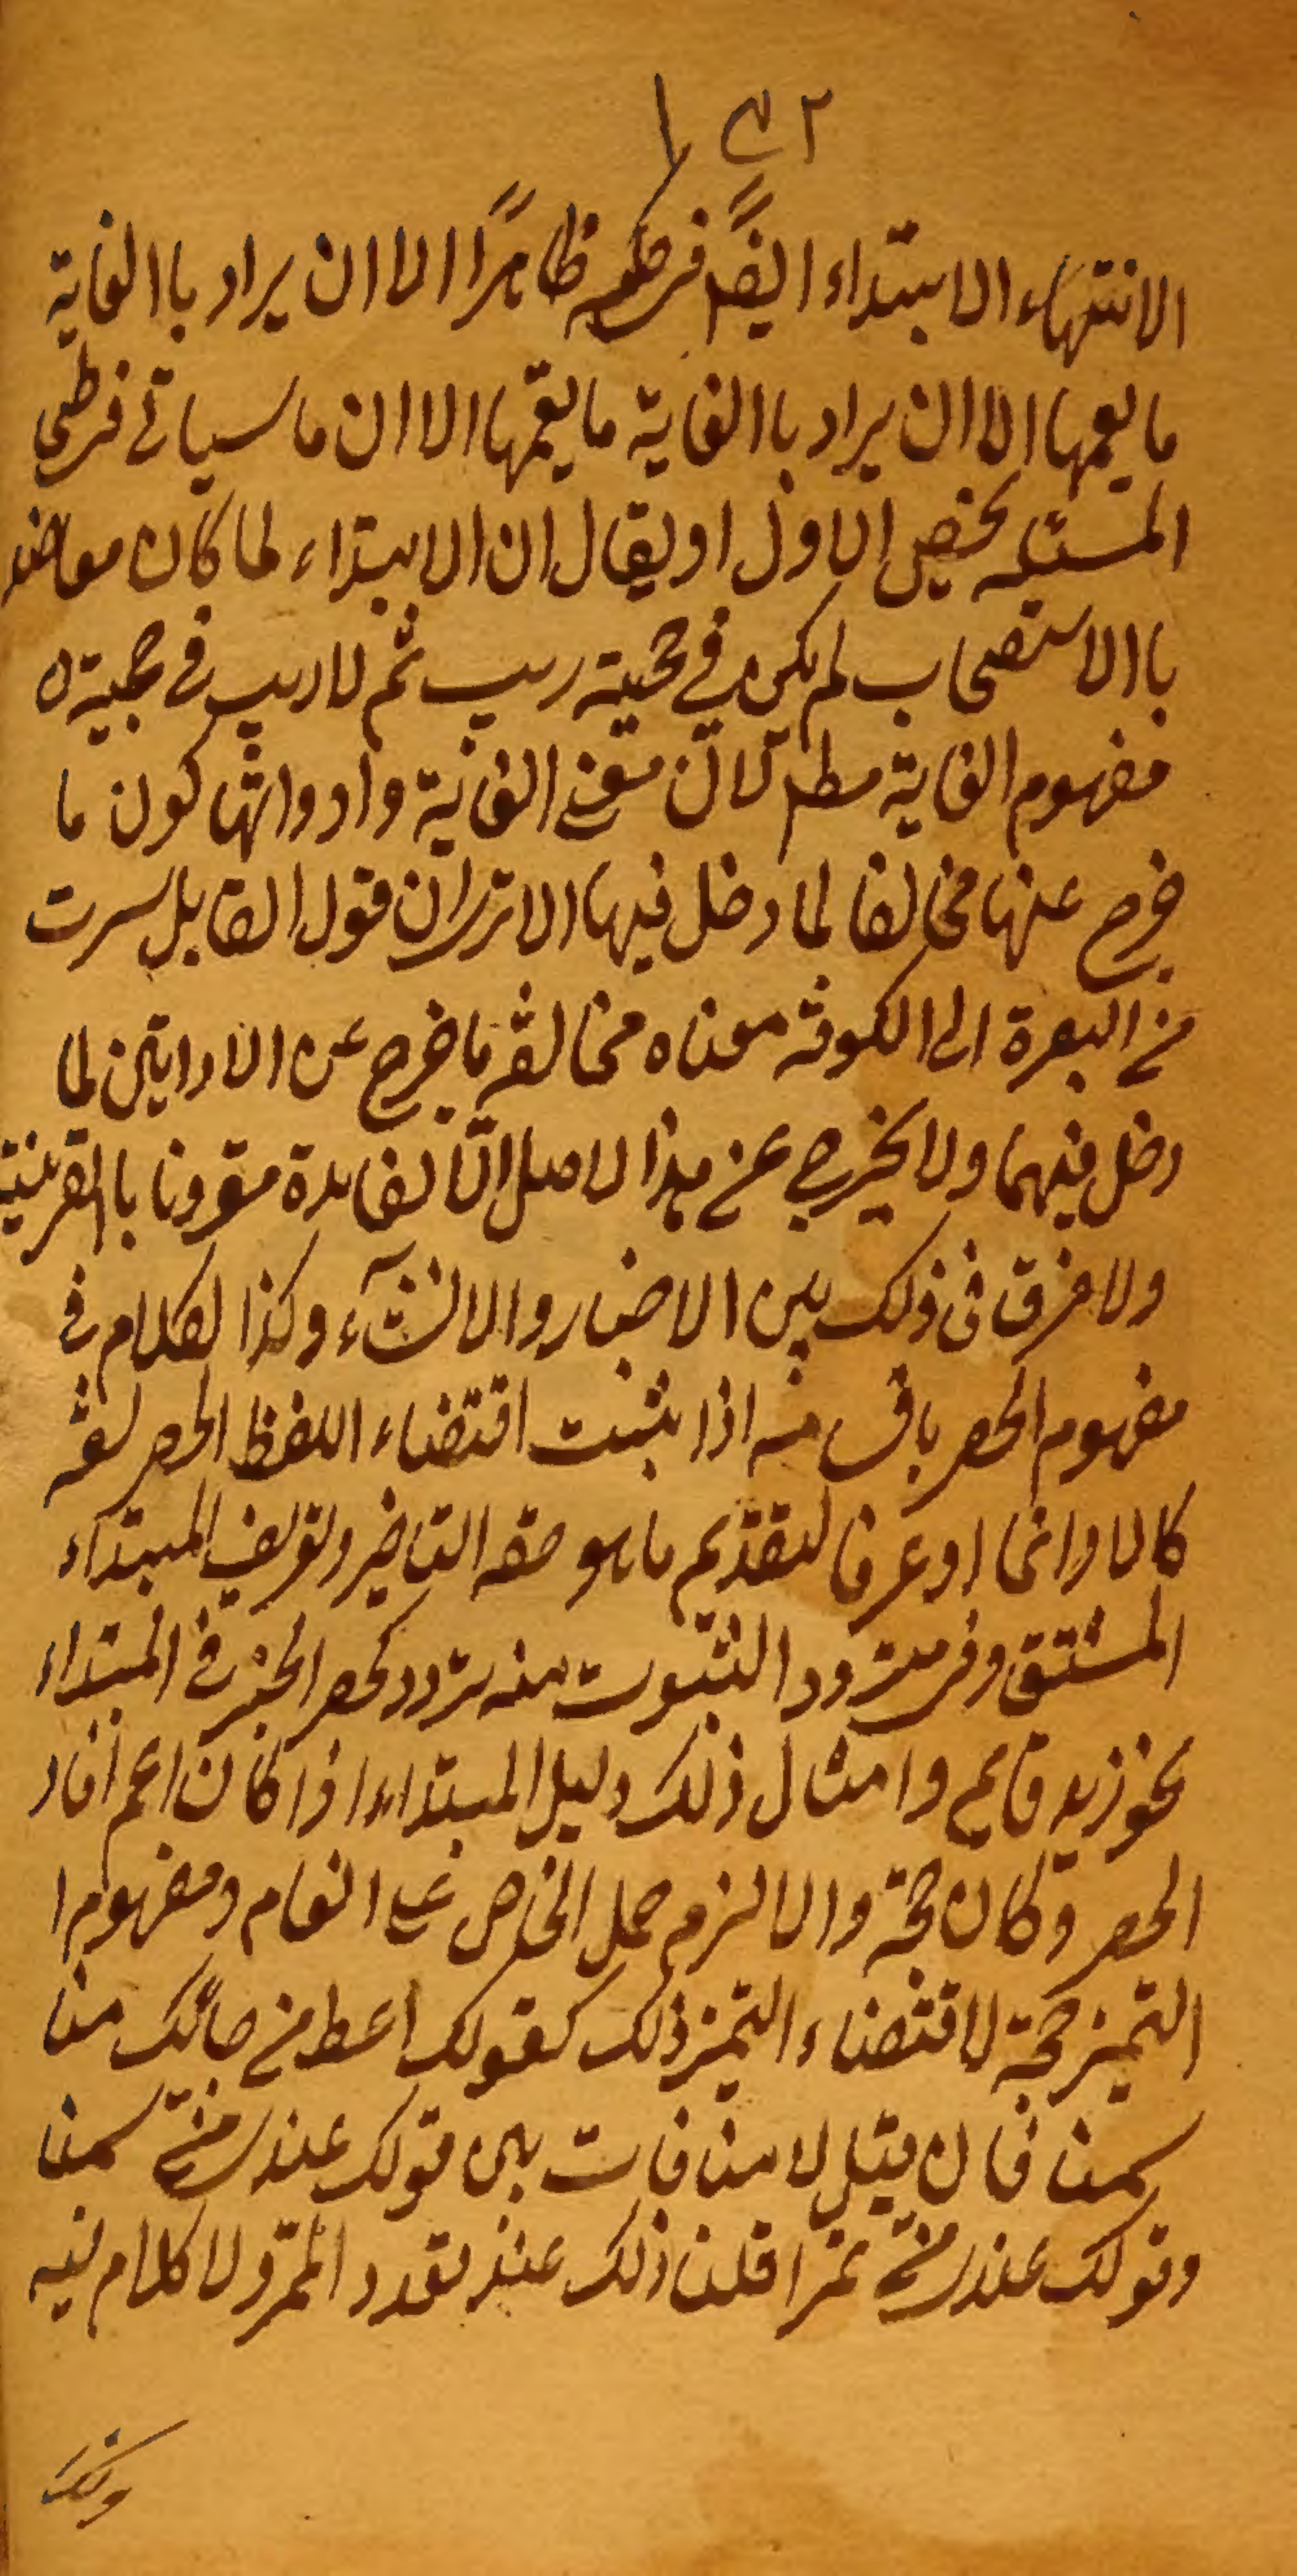 الانتهاء الابتداء ايضً في حكمه ظاهرًا الا ان يراد باالغاية
ما يعمها الا ان يراد باالغاية ما يعمّها الا ان ما سياتي في طي
المسئلة يخص الاول او يقال ان الابتداء لما كان معاضد
باالاستصحاب لم يكن في حجية ريب ثم لا ريب في حجية
مفهوم الغاية مطم لانّ معنى الغاية وادواتها كون ما
خرج عنها مخالفا لما دخل فيها الا ترى ان قول القايل سرت
من البصرة الى الكوفة معناه مخالفة ما خرج عن الارايتين لما
دخل فيهما ولا يخرج عن هذا الاصل الّا لفايدة مقرونا باالقرينة
ولا فرق في ذلك بين الاخبار والانشآء وكذا الكلام في
مفهوم الحصر باق منه اذا يثبت اقتضاء اللفظ الحصر لغة
كالا وانما او عرفا لتقديم ما هو حقه التاخير وتعريف المبتداء
المشتق وفي تردد الثبوت منه تردد كحصر الخبر في المبتداء
نحو زيد قايم وامثال ذلك دليل المبتداء اذا كان اعم افاد
الحصر وكان حجة والا لزم حمل الخاص على العام ومفهوم ا
التميز حجة لاقتضاء التميز ذلك كقولك اعط من جائك منا
سمنا فان قيل لا منافات بين قولك عندي منّ سمنا
وقولك عندي منّ تمرا قلنا ذلك عند تعدد المميّز ولا كلام فيه
وذلك